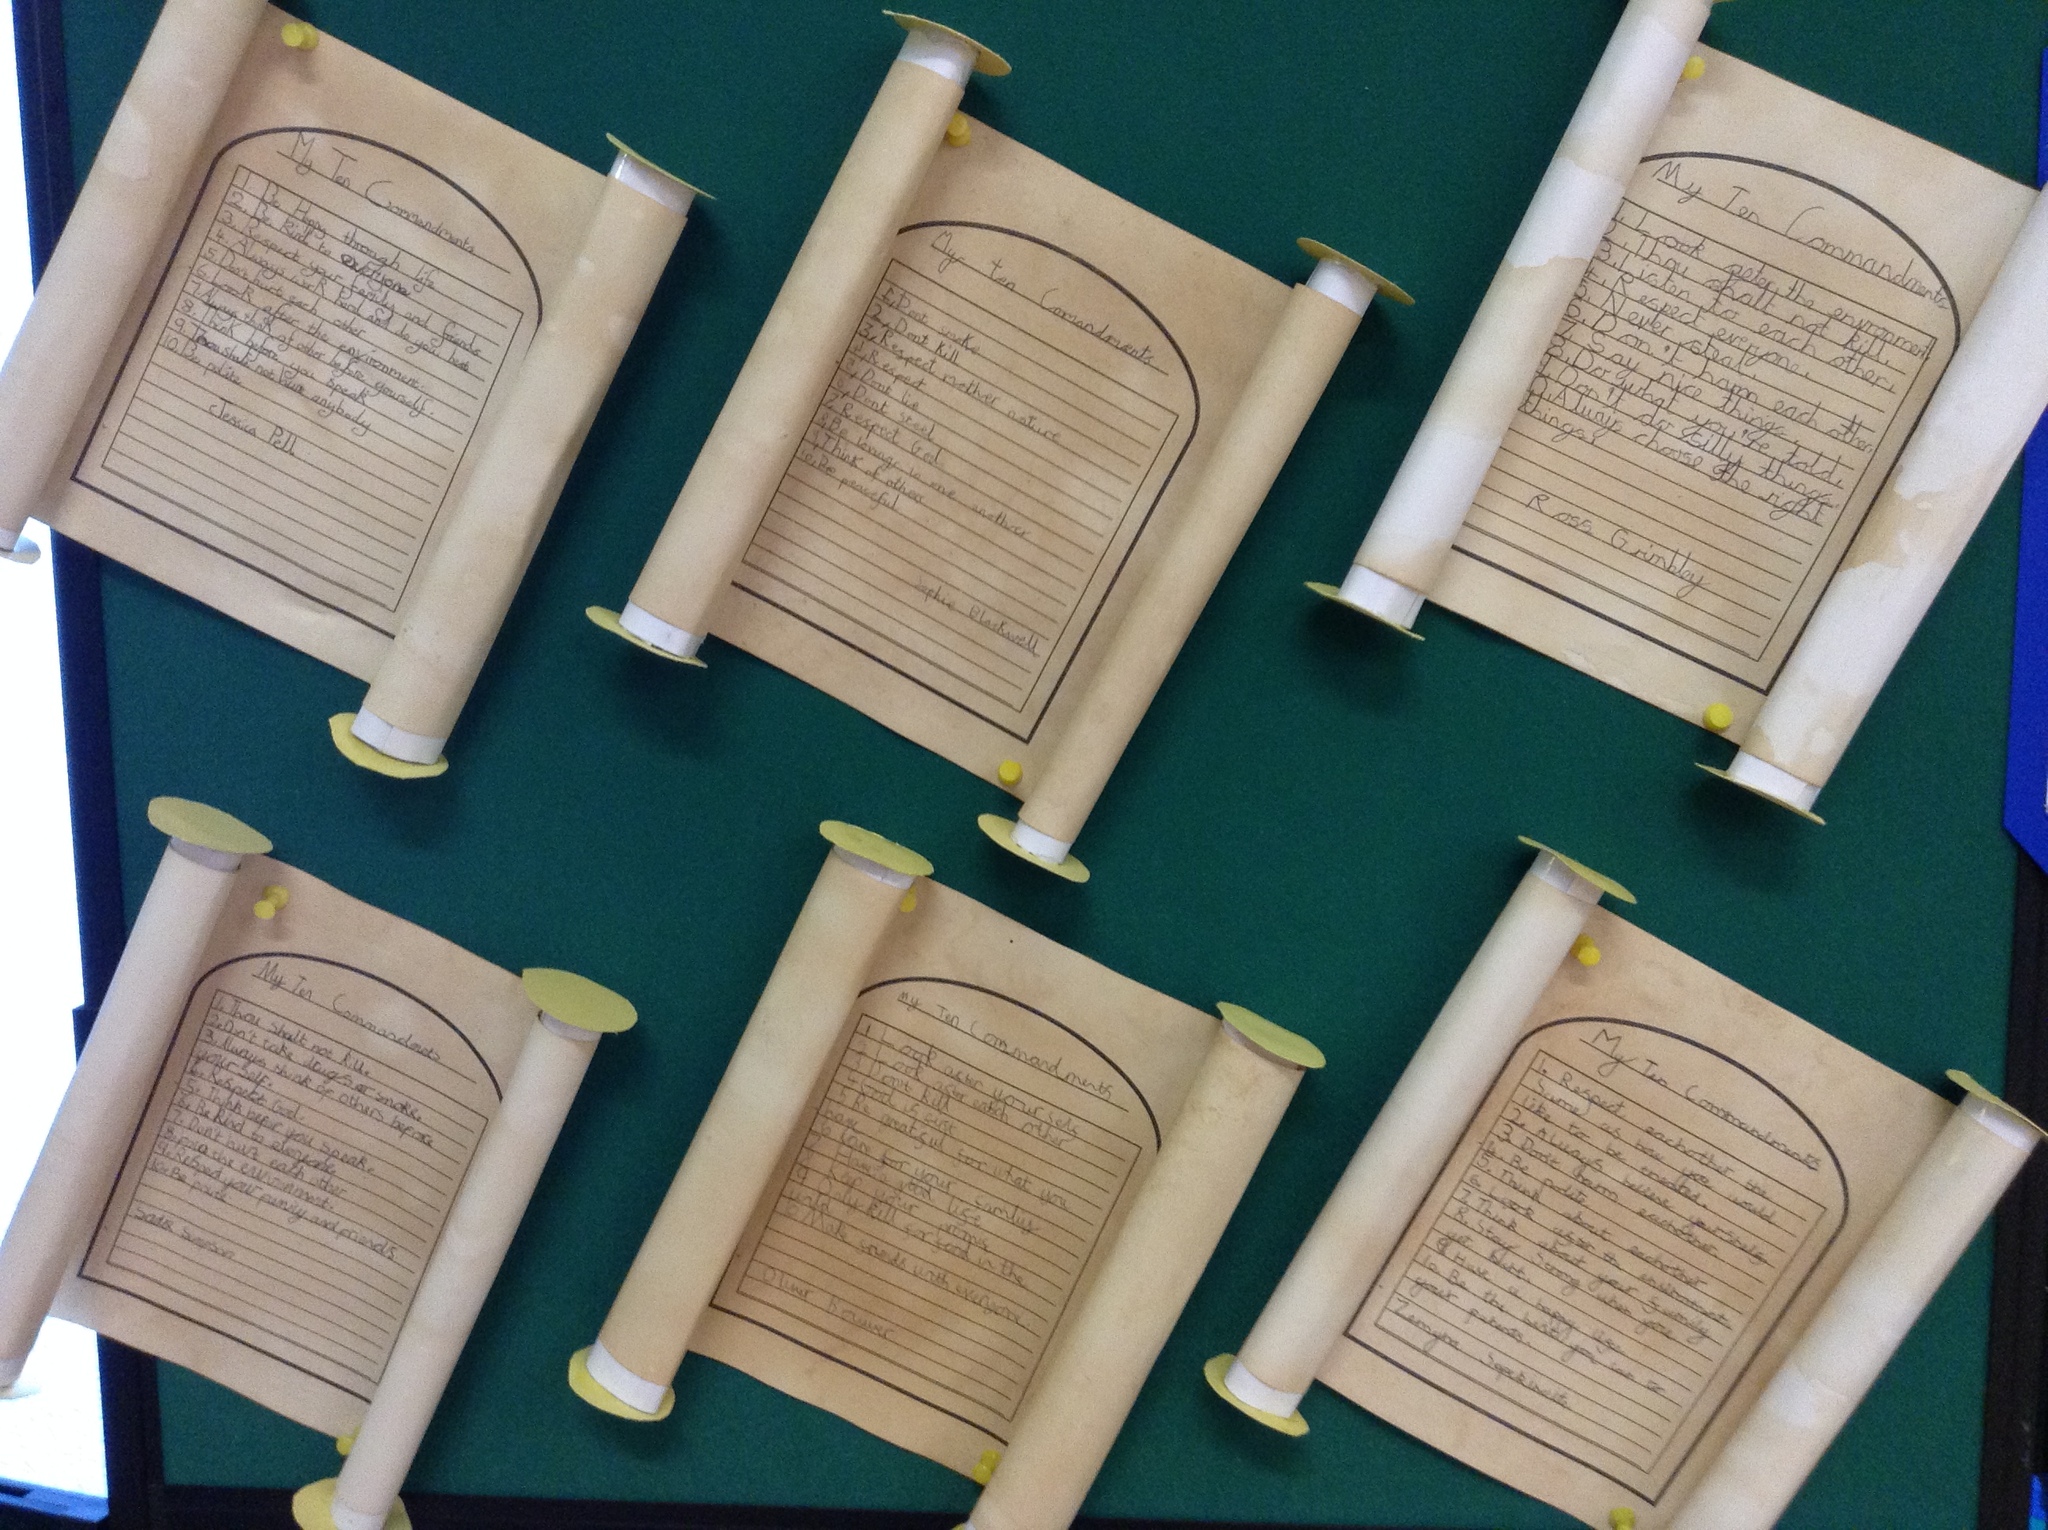 My Ten Commandments
1. Be Happy through life
2. Be kind to everyone
3. Respect your family and friends
4. Always work hard and do your best
5. Don't hurt each other
6. Look after the environment.
7. Always think of other before yourself.
8. Think before you speak
9. Thou shall not hurt anybody
10. Be polite
Jessica Pell
My ten Comandments
1. Dont smoke
2. Dont kill
3. Respect mother nature
4. Respect
5. Dont lie
6. Dont steel
7. Respect God
8. Be loving to one another
9. Think of other
10. Be peaceful
Sophie Blackwell
My Ten Commandments
1. Look after the environment
2. Thou shalt not kill.
3. Listen to each other.
4. Respect everyone.
5. Never steal
6. Don't harm each other
7. Say nice things.
8. Do what you're told.
9. Don't do silly things
10. Always choose the right
things!
Ross Grimbley
My Ten Commandments
1. Thou shalt not kill.
2. Don't take drugs or smoke.
3. Always think of others before
your self.
4. Respect God.
5. Think before you speak.
6. Be kind to everyone
7. Don't hurt each other
8. the environment.
9. Respect your family and friends
10. Be polite
Simpson
my Ten Commandments
1 Look after your self
2 Look after each other
3 Don't kill
4 God is first
5 Be grateful for what you
have
6 Care for your family
7 Have a good life
8 Keep your promis
9 Only kill for food in the
wild
10 Make friends with everyone.
Oliver brawer
My Ten Commandments
1. Respect eachother the
same as how you would
like to be treated.
2. Always believe yourself
3. Don't harm eachother
4. Be polite
5. Think about eachother
6. Look after the enviroment
7. Think about your family
8. Stay Strong when you
get hurt.
9. Have a happy life
10. Be the best you can to
your parents.